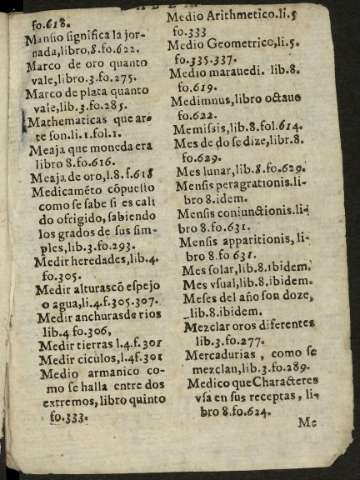 TABLA
fo.618.
Mansio significa la jor-
nada,libro,8.fo.622.
Marco de oro quanto
vale,libro.3.fo.275.
Marco de plata quanto
vale,lib.3.fo.285.
Mathematicas que ar-
te son.li.1.fol.1.
Meaja que moneda era
libro 8.fo.616.
Meaja de oro,l.8.f.618
Medicamẽto cõpuesto
como se sabe si es cali
do ofrigido, sabiendo
los grados de sus sim-
ples,lib.3.fo.293.
Medir heredades,lib.4.
fo.305.
Medir alturascõ espejo
o agua,li.4.f.305.307.
Medir anchurasde rios
lib.4 fo.306,
Medir tierras l.4.f.301
Medir ciculos,l.4f.301
Medio armanico co-
mo se halla entre dos
extremos, libro quinto
fo.333.
Medio Arithmetico.li.5
fo.333
Medio Geometrico,li.5
fo.335.337.
Medio marauedi. lib.8.
fo.619.
Medimnus,libro octauo
fo.622.
Memisis,lib.8.fol.614.
Mes de do se dize,libr.8.
fo.629.
Mes lunar,lib.8.fo.629.
Mensis peragrationis.li-
bro 8.idem.
Mensis coniunctionis.li-
bro 8.fo.631.
Mensis apparitionis, li-
bro 8.fo 631.
Mes solar,lib.8.ibidem.
Mes vsual,lib.8.ibidem.
Meses del año son doze,
lib.8.ibidem.
Mezclar oros diferentes
lib.3.fo.277.
Mercadurias , como se
mezclan,lib.3.fo.289.
Medico que Characteres
vsa en sus receptas, li-
bro 8.fo.624.
Me